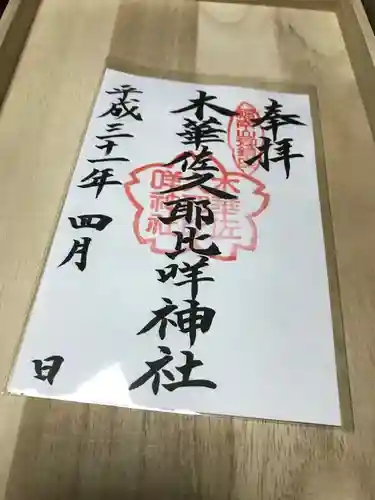 奉拝
木華佐久耶比咩神社
平成三十一年 四月 日
木華佐
咩神社